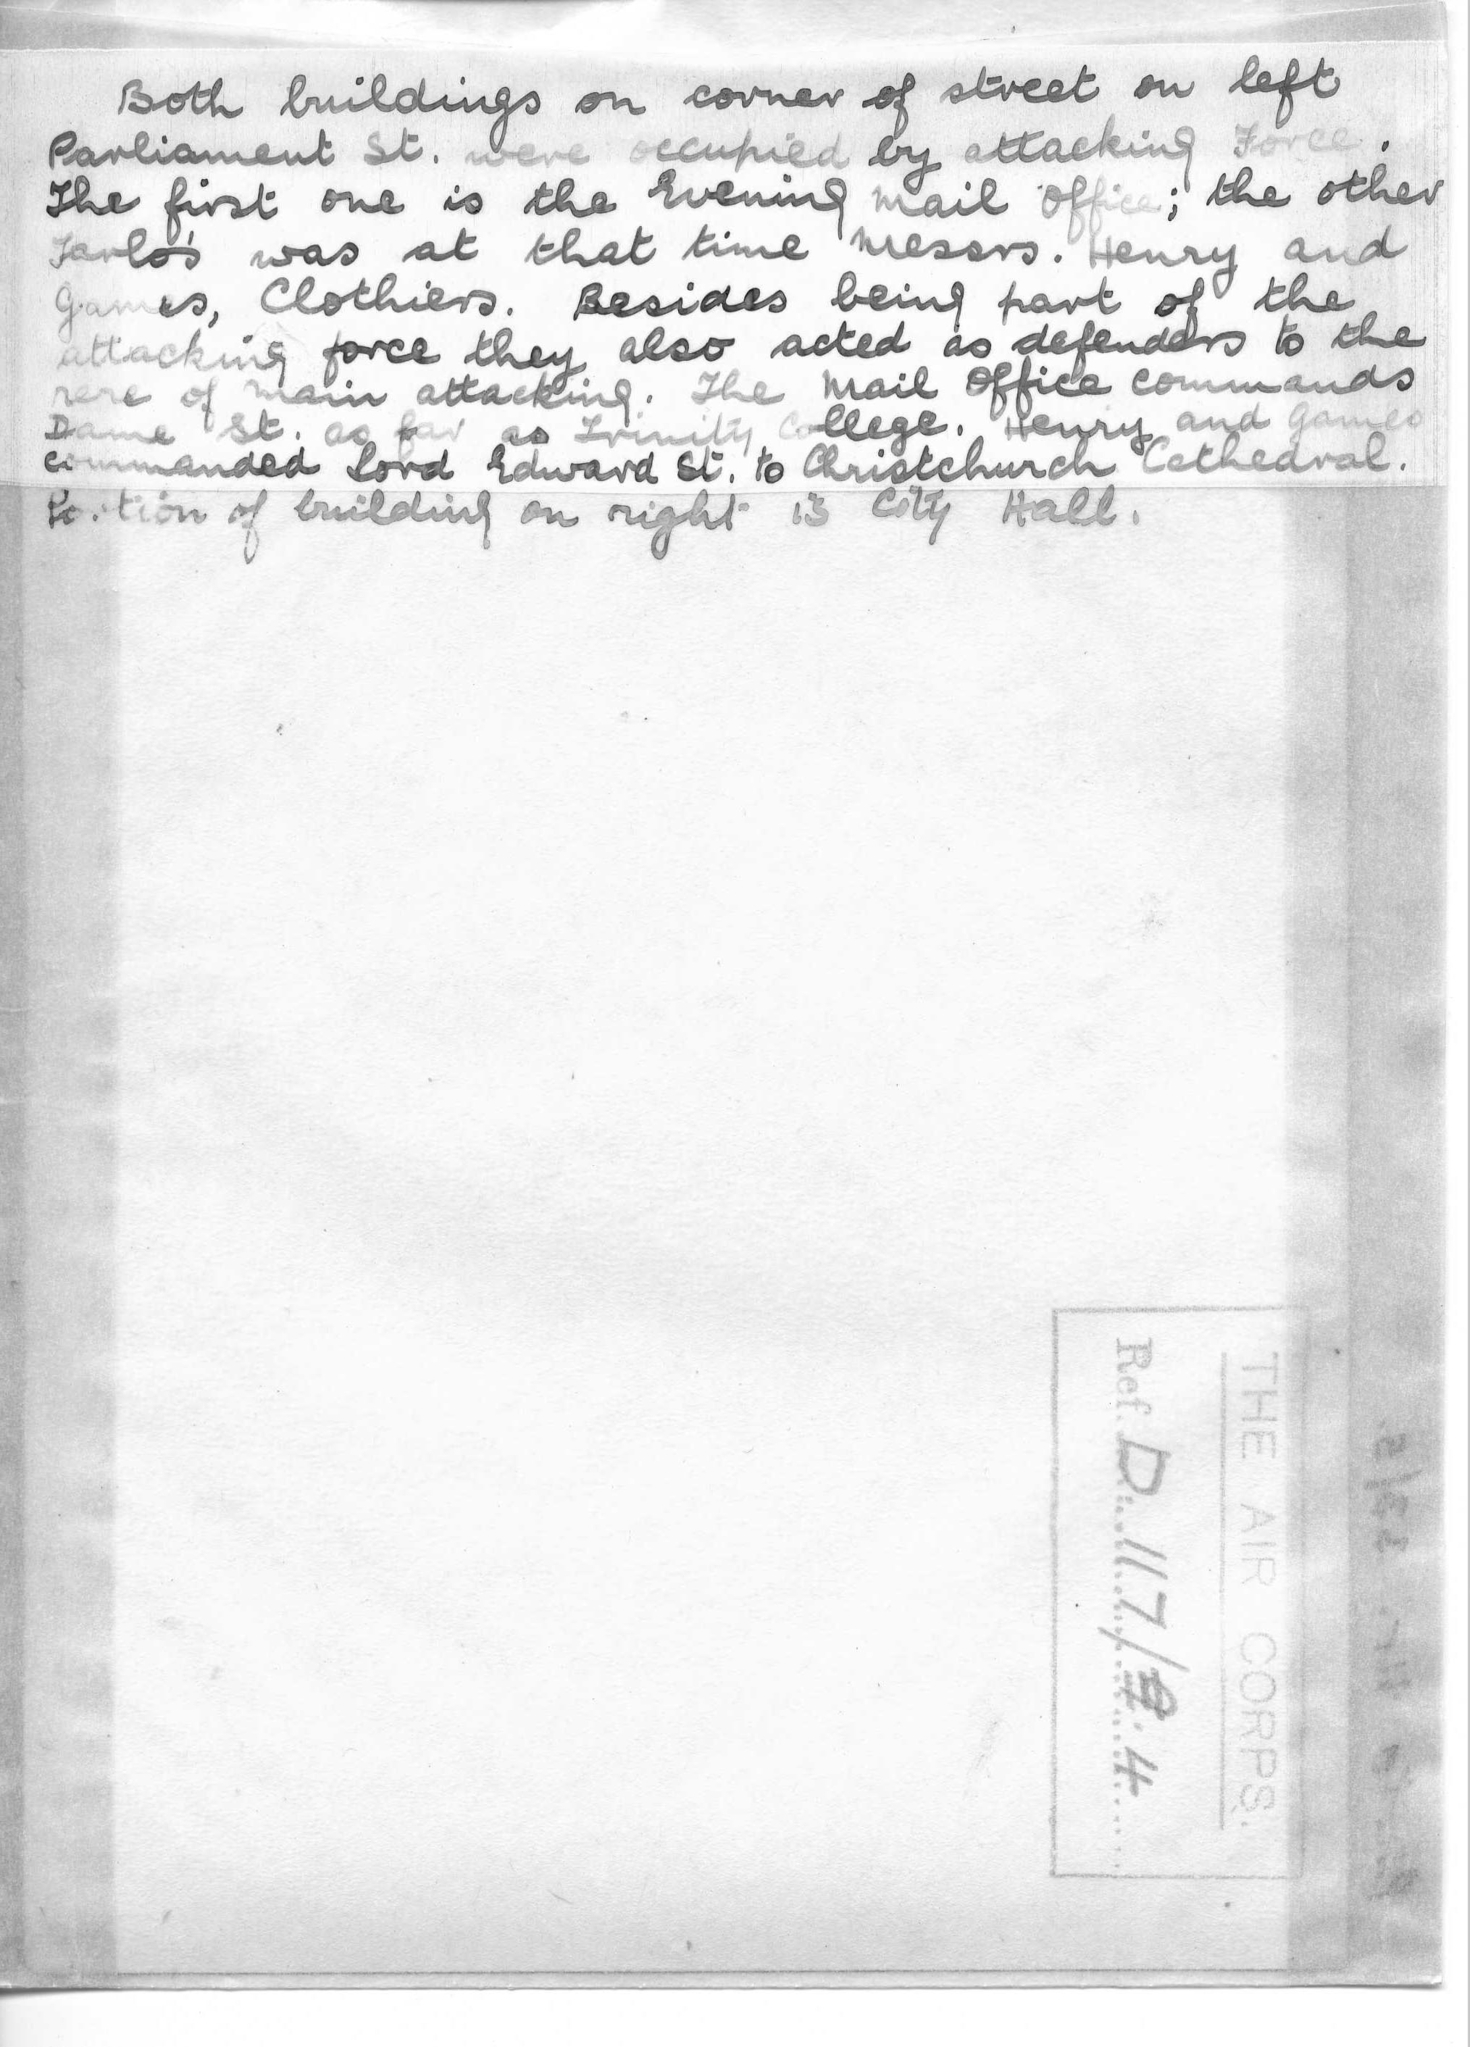 Both buildings on corner of street on left
Parliament St. were occupied by attacking Force.
The first one is the Evening Mail Office; the other
was at that time Messrs. Henry and
Games, Clothiers. Besides being part of the
attacking force they also acted as defenders to the
rere of main attacking. The Mail Office commands
Dame St. as far as Trinity College. Henry and Games
commanded Lord Edward St. to Christchurch Cathedral.
Portion of building on right is City Hall.
THE AIR CORPS.
Ref. D. 117/ 4